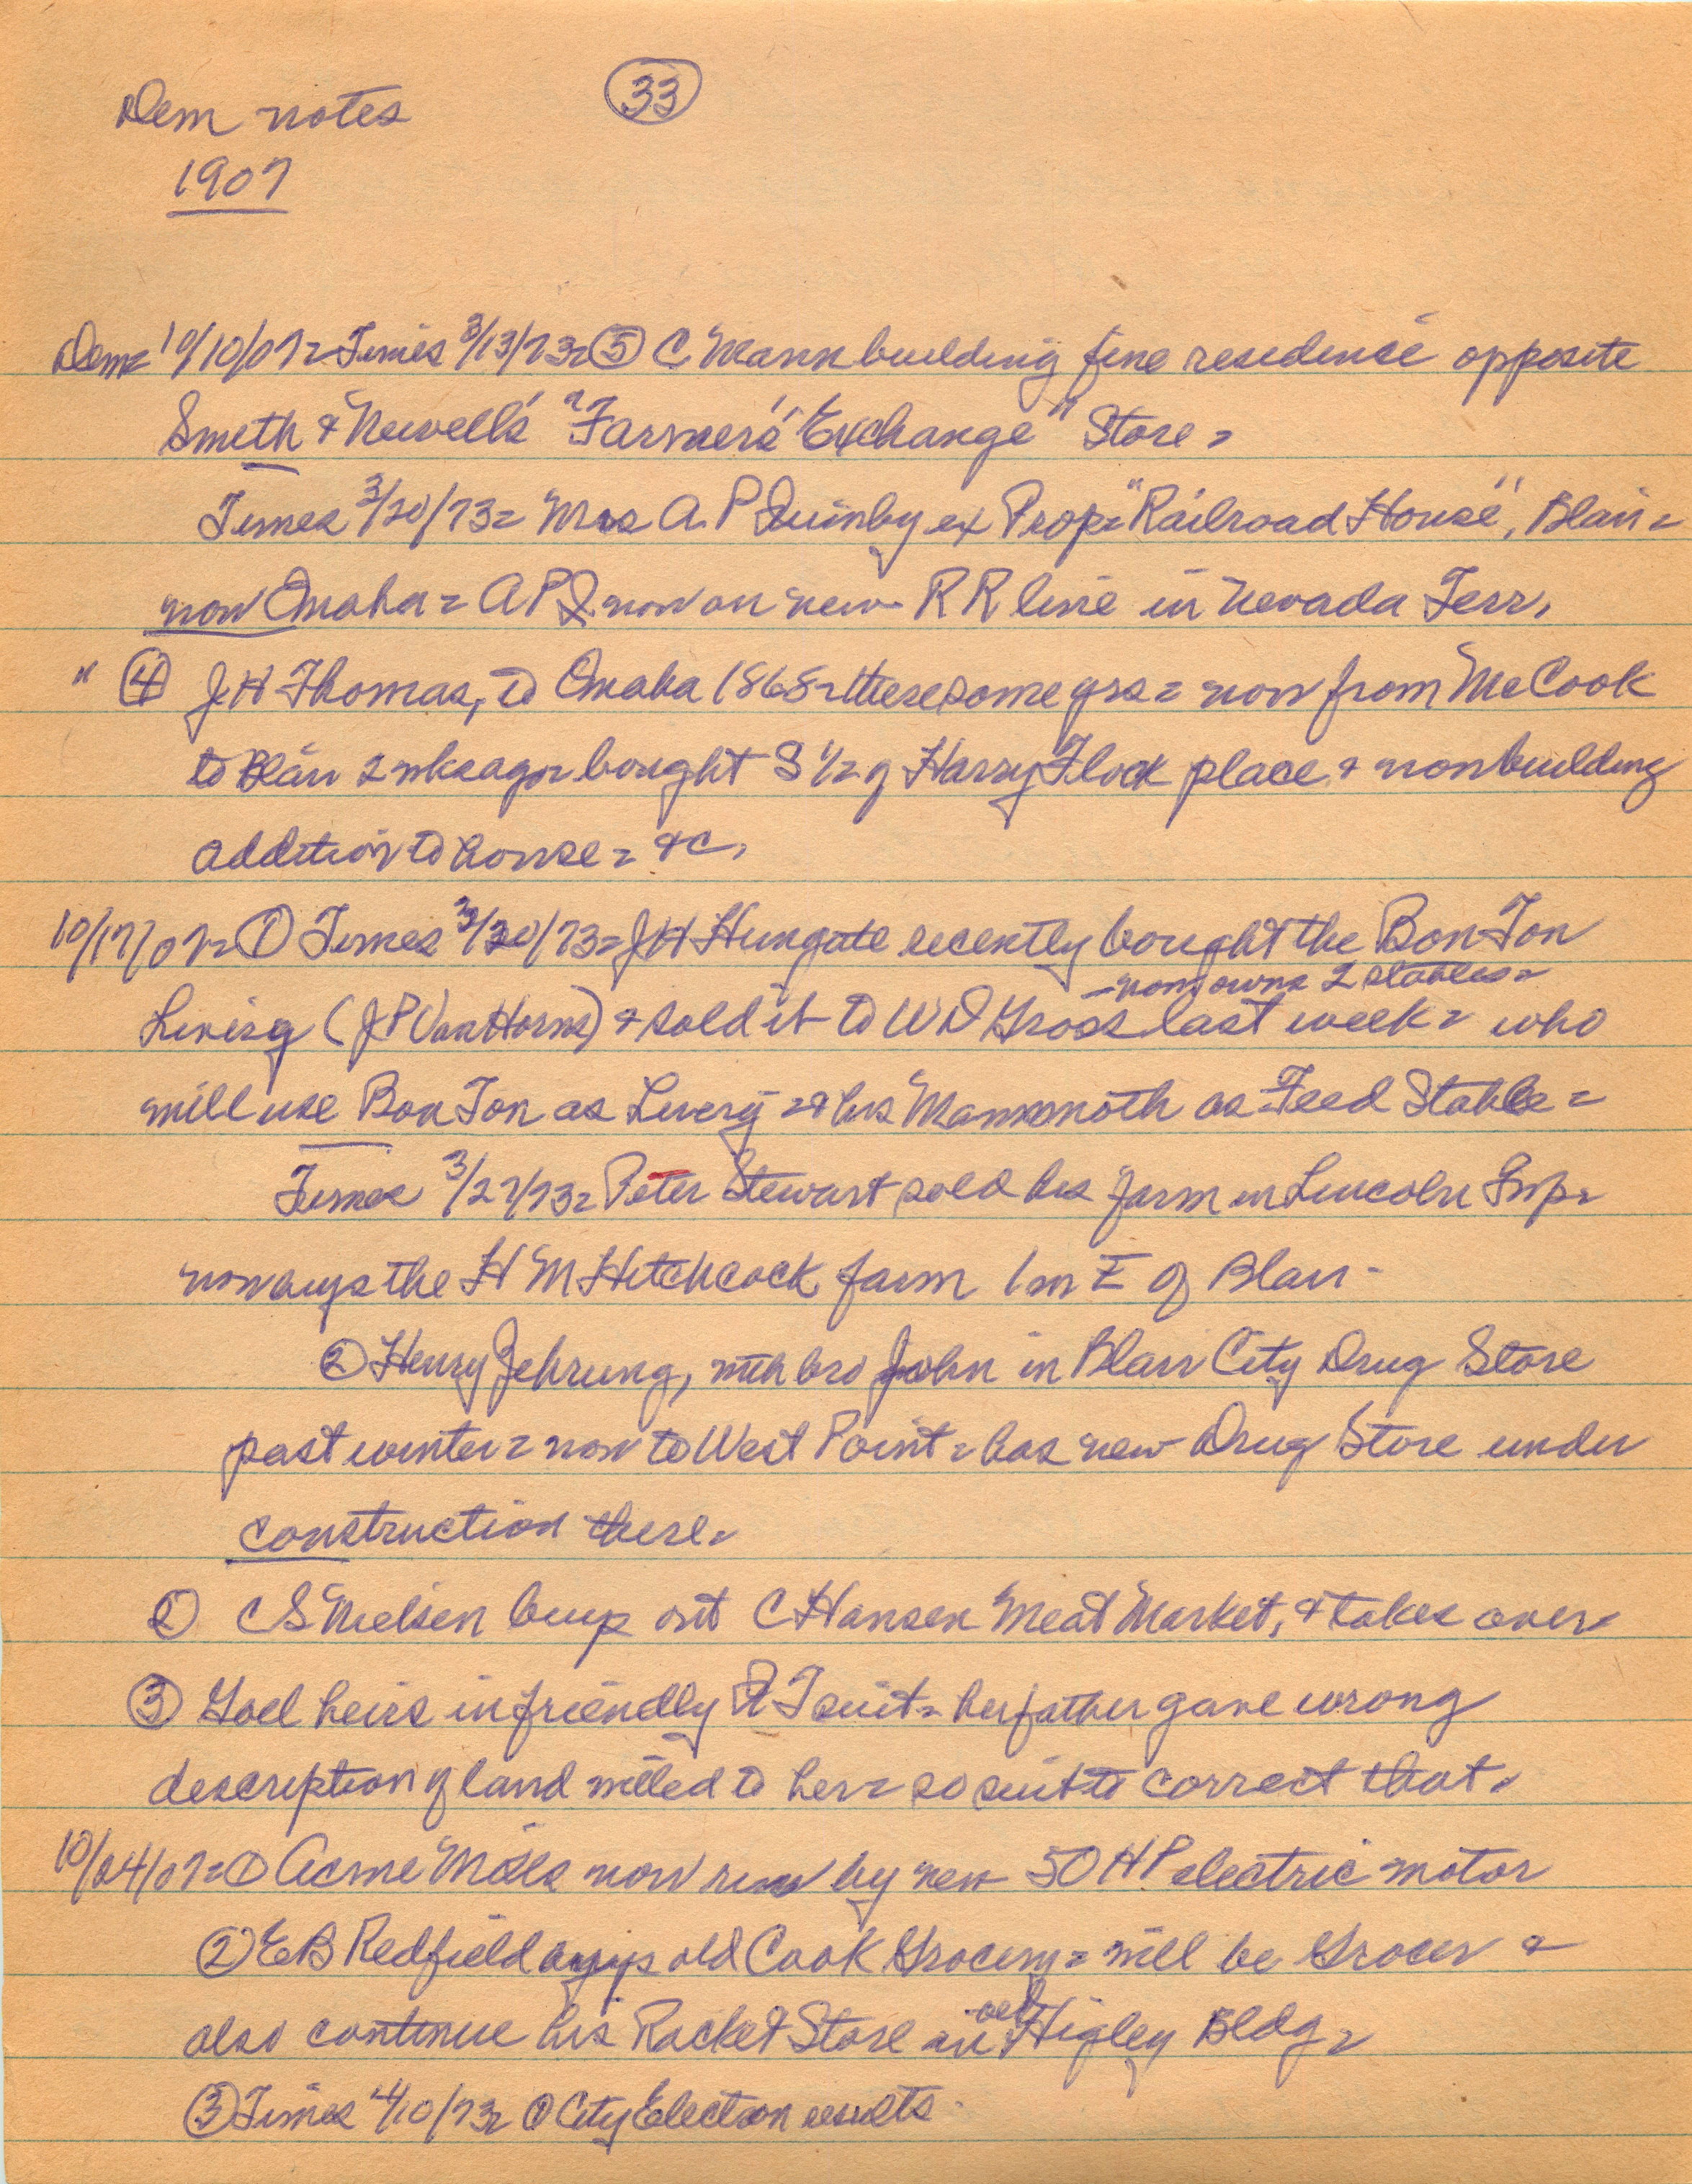 Dem notes
33
1907
Dem= 10/10/07= Times 3/13/73= ⑤ C Mann building fine residence opposite
Smith & Newell's "Farmer's Exchange" Store=
Times 3/20/73= Mrs A.P Quinby ex Prop= "Railroad House", Blair=
now Omaha= APQ now on new RR line in Nevada Terr.
" ④ JH Thomas, to Omaha 1868= there some yrs= now from McCook
to Blair 2 wks ago= bought S 1/2 of Harry Flock place & now building
addition to house= &c.
10/17/07= ① Times 3/20/73= JH Hungate recently bought the Bon Ton
-now owns 2 stables=
Livery (JP VanHorns) & sold it to WD Gross last week= who
will use Bon Ton as Livery = & his Mammoth as Feed Stable=
Times 3/27/73= Peter Stewart sold his farm in Lincoln Twp=
now buys the H M Hitchcock farm 1 m E of Blair-
② Henry Gehrung, with bro John in Blair City Drug Store
past winter= now to West Point= has new Drug Store under
construction there=
② CS Nielsen buys out C Hansen Meat Market, & takes over=
③ Goel heirs in friendly suit= her father gave wrong
description of land willed to her= so suit to correct that=
10/24/07= ① Acme Mills now run by new 50 HP electric motor
② EB Redfield buys old Cook Grocery= will be Grocer &
also continue his Racket Store in Higley Bldg=
③ Times 4/10/73= ① City Election results-